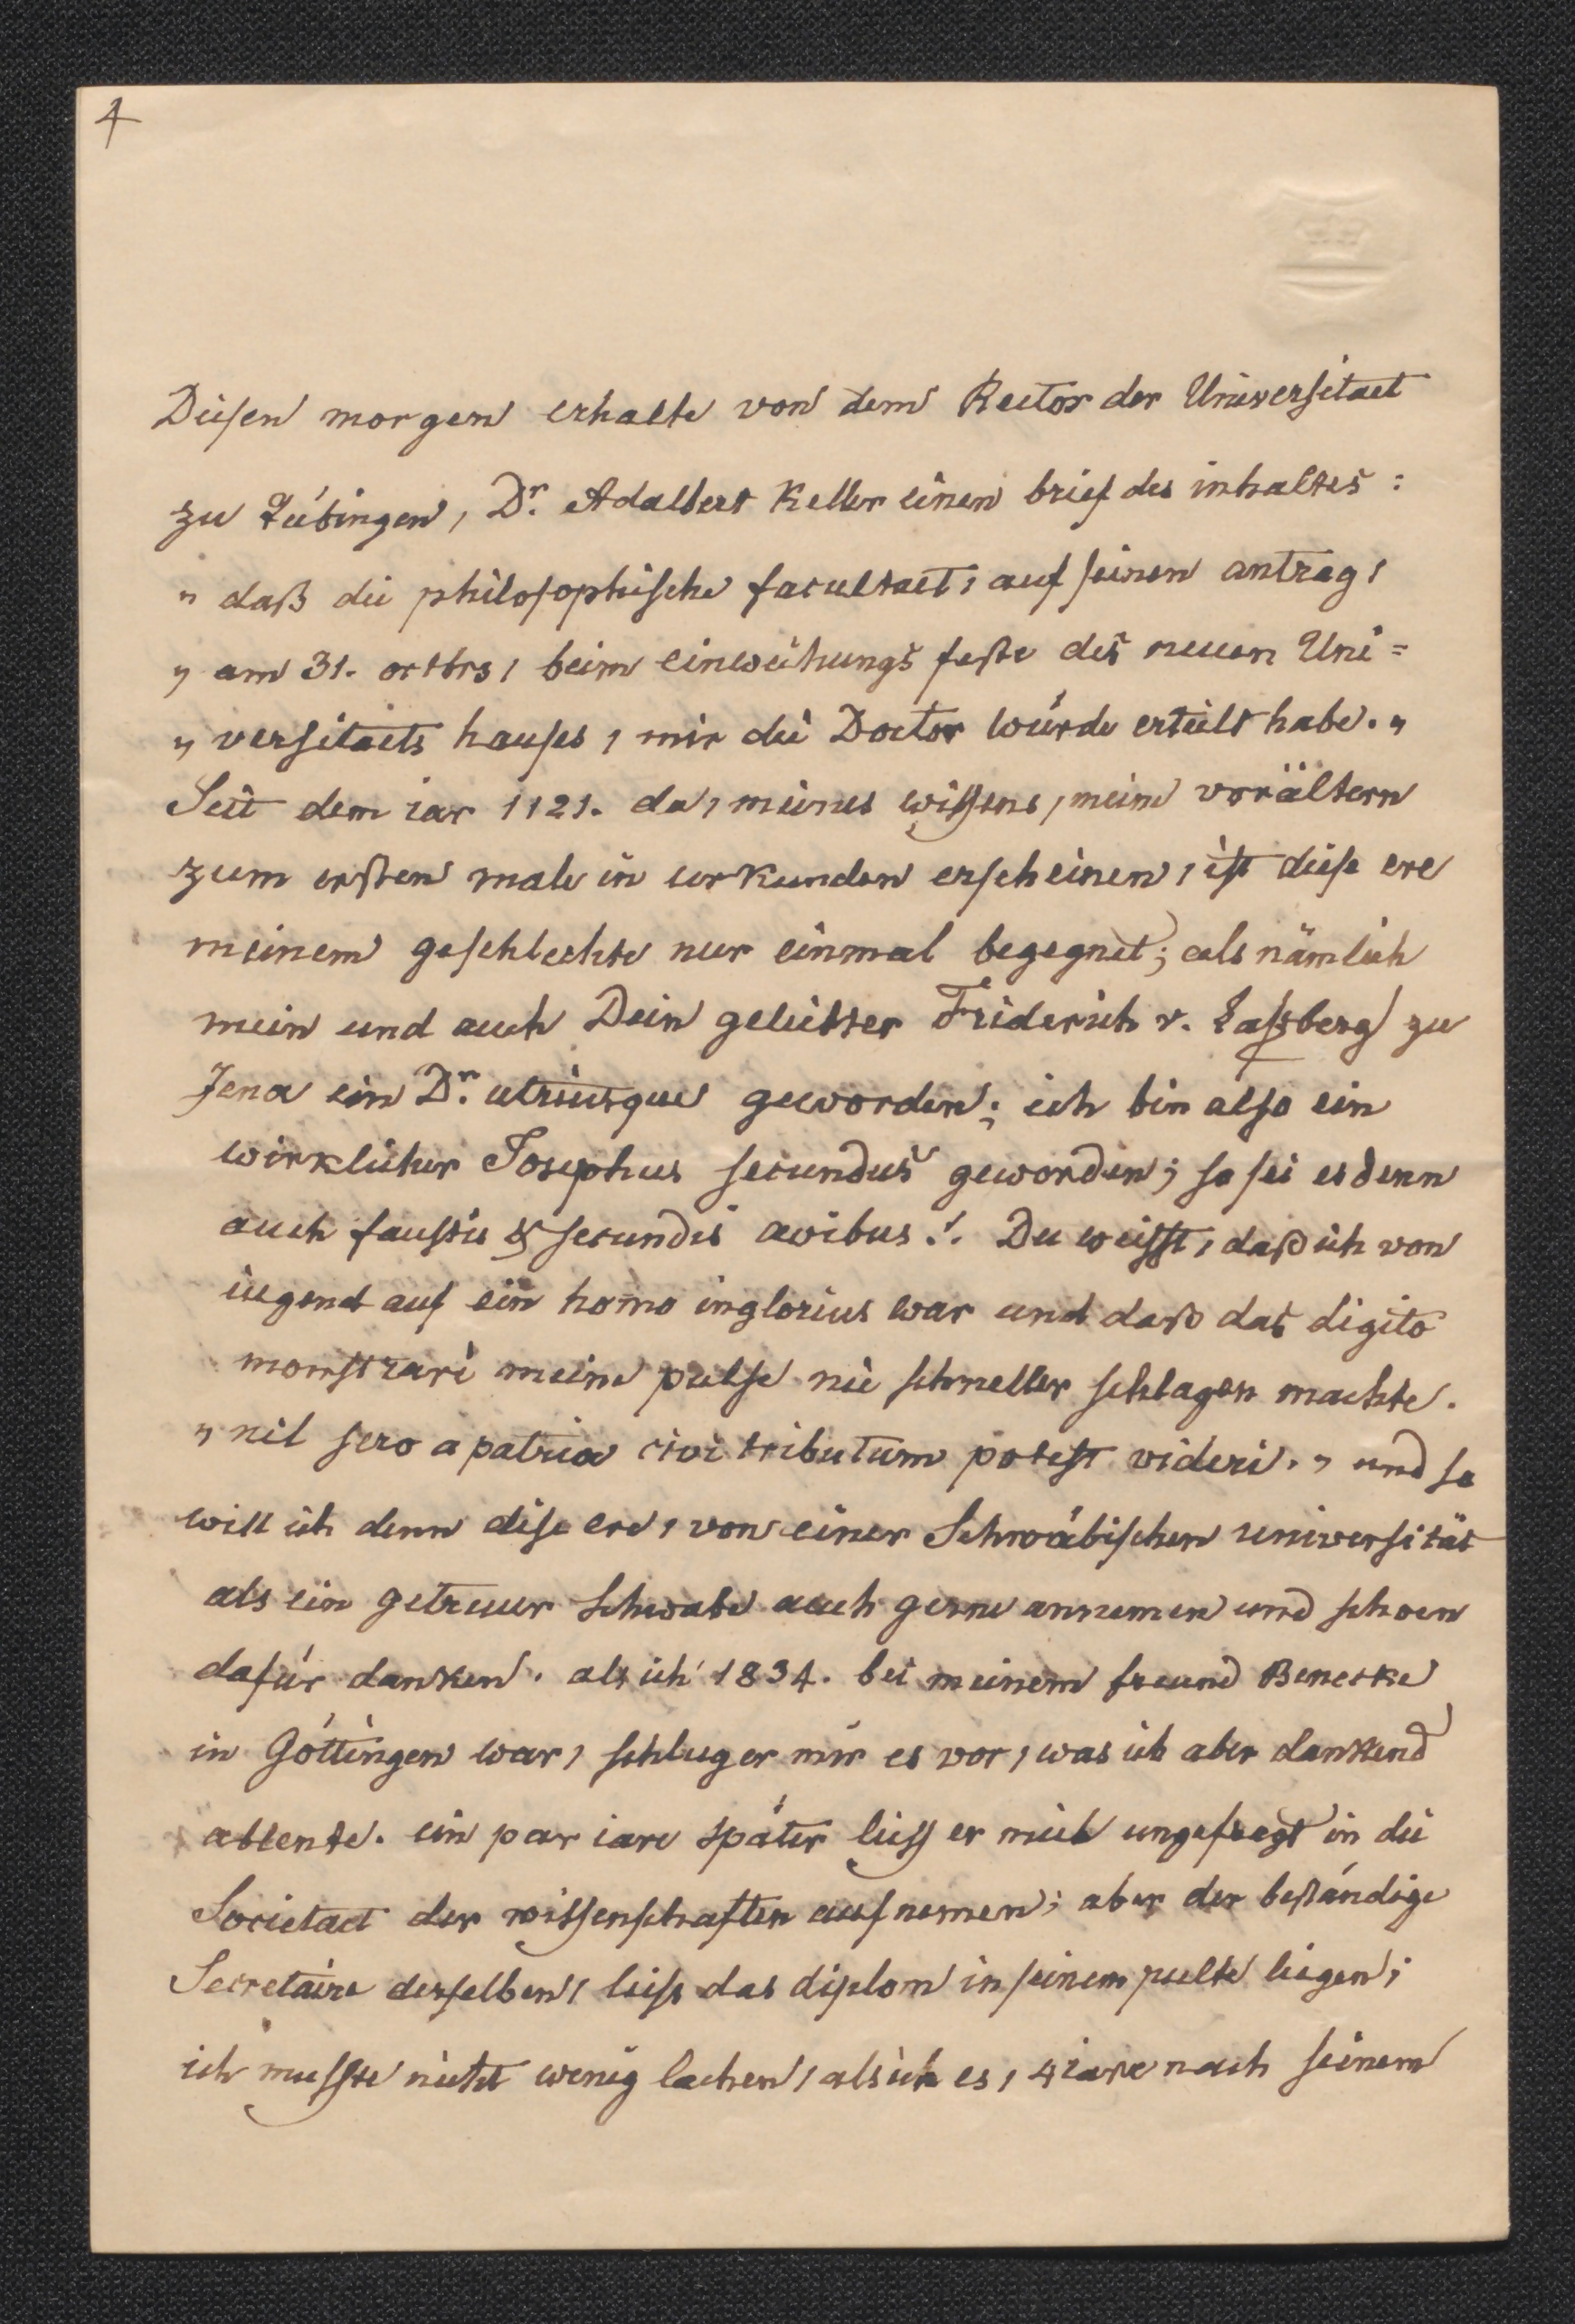 4
Diesen morgen erhalte von dem Rector der Universitaet
zu Tübingen, Dr. Adalbert Keller einen brief des inhaltes:
„ daß die philosophische facultaet, auf seinen antrag,
„ am 31. octbrs, beim einweihungs feste des neuen Uni=
„ versitaets hauses, mir die Doctor würde erteilt habe. „
Seit dem iar 1121. da, meines wissens, meine vorältern
zum ersten male in urkunden erscheinen, ist diese ere
meinem geschlechte nur einmal begegnet; als nämlich
mein und auch Dein geliebter Friderich v. Laßberg zu
Jena ein Dr. utriusque geworden; ich bin also ein
wirklicher Josephus secundus geworden; so sei es denn
auch faustis & secundis avibus!. Du weisst, daß ich von
iugend auf ein homo inglorius war und daß das digito
monstrari meine pulse nie schneller schlagen machte.
„ nil sero a patria civi tributum potest videri. „ und so
will ich denn dise ere, von einer Schwäbischen universität
als ein getreuer Schwabe auch gerne annemen und schoen
dafür danken. als ich 1834. bei meinem freund Benecke
in Göttingen war, schlug er mir es vor, was ich aber dankend
ablente. ein par iare später liess er mich ungefragt in die
Societaet der wissenschaften aufnemen; aber der beständige
Secretaire derselben, liess das diplom in seinem pulte liegen;
ich musste nicht wenig lachen, als ich es, 4 iare nach seinem